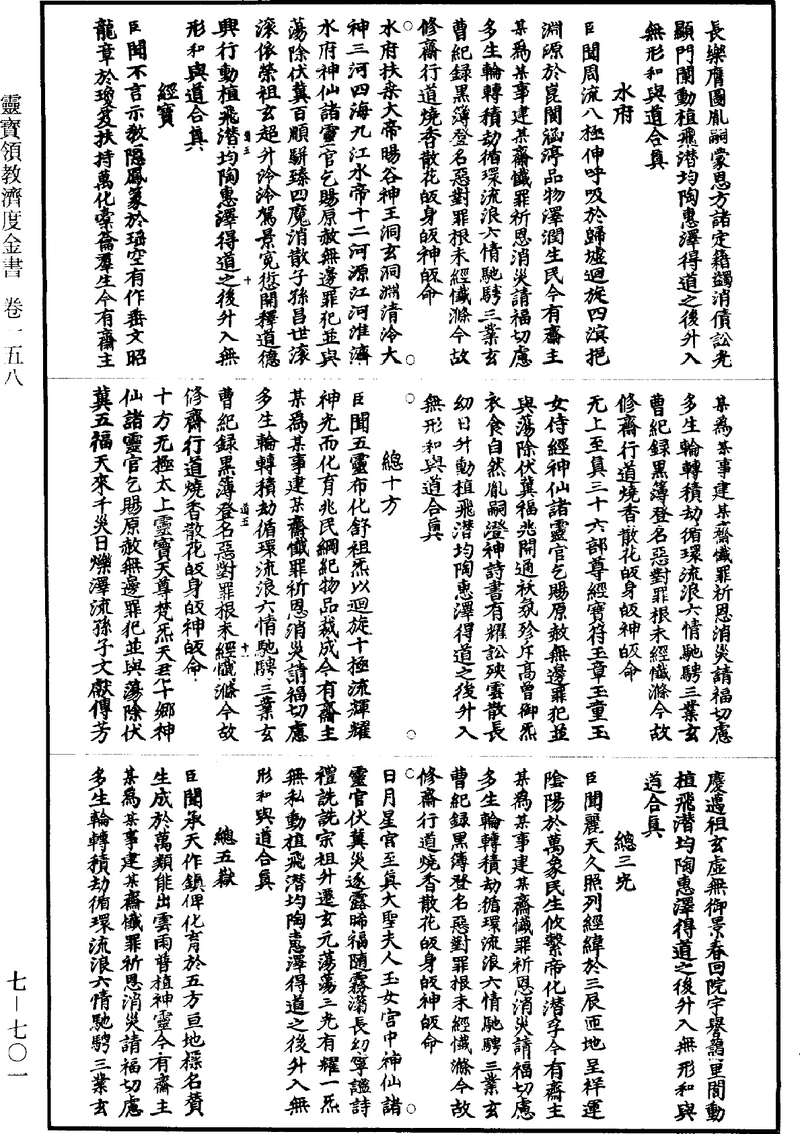 長樂膺圖胤嗣蒙恩方諸定籍蠲消債訟光
顯門闌動植飛潛均陶惠澤得道之後升入
無形和與道合真
水府
臣聞周流八極伸呼吸於歸墟迴旋四溟挹
淵源於崑閬涵渟品物澤潤生民今有齋主
某為某事建某齋懺罪祈恩消災請福切慮
多生輪轉積劫循環流浪六情馳騁三業玄
曹紀録黑簿登名惡對罪根未經懺滌今故
修齋行道燒香散花皈身皈神皈命
水府扶桑大帝暘谷神王洞玄洞淵清泠大
神三河四海九江水帝十二河源江河淮濟
水府神仙諸靈官乞賜原赦無邊罪犯並與
蕩除伏冀百順駢臻四魔消散子孫昌世滚
滚依榮祖玄超升泠泠駕景冤愆開釋道德
興行動植飛潛均陶惠澤得道之後升入無
形和與道合真
經寶
臣聞不言示教隱鳳篆於瑶空有作垂文昭
龍章於瓊笈扶持萬化橐籥羣生今有齋主
某為某事建某齋懺罪祈恩消災請福切慮
多生輪轉積劫循環流浪六情馳騁三業玄
曹紀録黑簿登名惡對罪根未經懺滌今故
修齋行道燒香散花皈身皈神皈命
无上至真三十六部尊經寶符玉章玉童玉
女侍經神仙諸靈官乞賜原赦無邊罪犯並
與蕩除伏冀福兆開通袄氛殄斥高曾御炁
衣食自然胤嗣澄神詩書有耀訟殃雲散長
幼日升動植飛潛均陶惠澤得道之後升入
無形和與道合真
總十方
臣聞五靈布化舒祖炁以迴旋十極流輝耀
神光而化育兆民綱紀物品裁成今有齋主
某為某事建某齋懺罪祈恩消災請福切慮
多生輪轉積劫循環流浪六情馳騁三業玄
曹紀録黑簿登名惡對罪根未經懺滌今故
修齋行道燒香散花皈身皈神皈命
十方无極太上靈寶天尊梵炁天君十鄉神
仙諸靈官乞賜原赦無邊罪犯並與蕩除伏
冀五福天來千災日爍澤流孫子文獻傳芳
慶邁祖玄虛無御景春回院宇譽藹里閭動
植飛潛均陶惠澤得道之後升入無形和與
道合真
總三光
臣聞麗天久照列經緯於三辰匝地呈祥運
陰陽於萬象民生攸繫帝化潛孚今有齋主
某為某事建某齋懺罪祈恩消災請福切慮
多生輪轉積劫循環流浪六情馳騁三業玄
曹紀録黑簿登名惡對罪根未經懺滌今故
修齋行道燒香散花皈身皈神皈命
日月星官至真大聖夫人玉女宫中神仙諸
靈官伏冀災逐露晞福隨霧滃長幼寧謐詩
禮詵詵宗祖升遷玄元蕩蕩三光有耀一炁
無私動植飛潛均陶惠澤得道之後升入無
形和與道合真
總五嶽
臣聞承天作鎮俾化育於五方亘地標名贊
生成於萬類能出雲雨普植神靈今有齋主
某為某事建某齋懺罪祈恩消災請福切慮
多生輪轉積劫循環流浪六情馳騁三業玄
靈寶領教濟度金書 卷一五八
七－七〇一